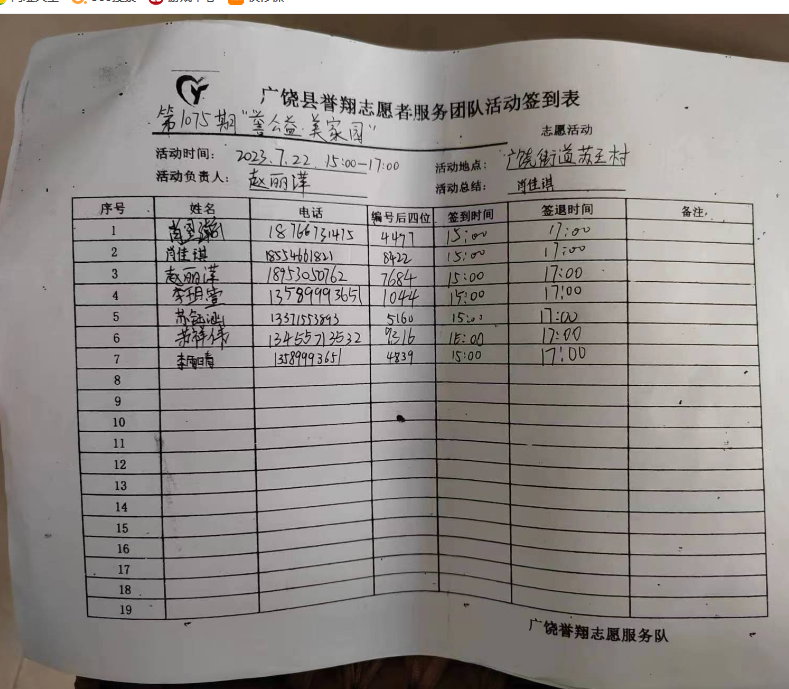 广饶县誉翔志愿者服务团队活动签到表
第1075期"善公益·美家园" 志愿活动
活动时间: 2023.7.22. 15:00-17:00 活动地点: 广饶街道苏王村
活动负责人: 赵丽萍 活动总结: 肖佳琪
序号 姓名 电话 编号后四位 签到时间 签退时间 备注
1 18766731475 4477 15:00 17:00
2 肖佳琪 18554661821 8422 15:00 17:00
3 赵丽萍 18953050762 7684 15:00 17:00
4 李玥萱 13589993651 1044 15:00 17:00
5 13371553893 5160 15:00 17:00
6 苏祥伟 13455713532 9316 15:00 17:00
7 13589993651 4839 15:00 17:00
8
9
10
11
12
13
14
15
16
17
18
19
广饶誉翔志愿服务队